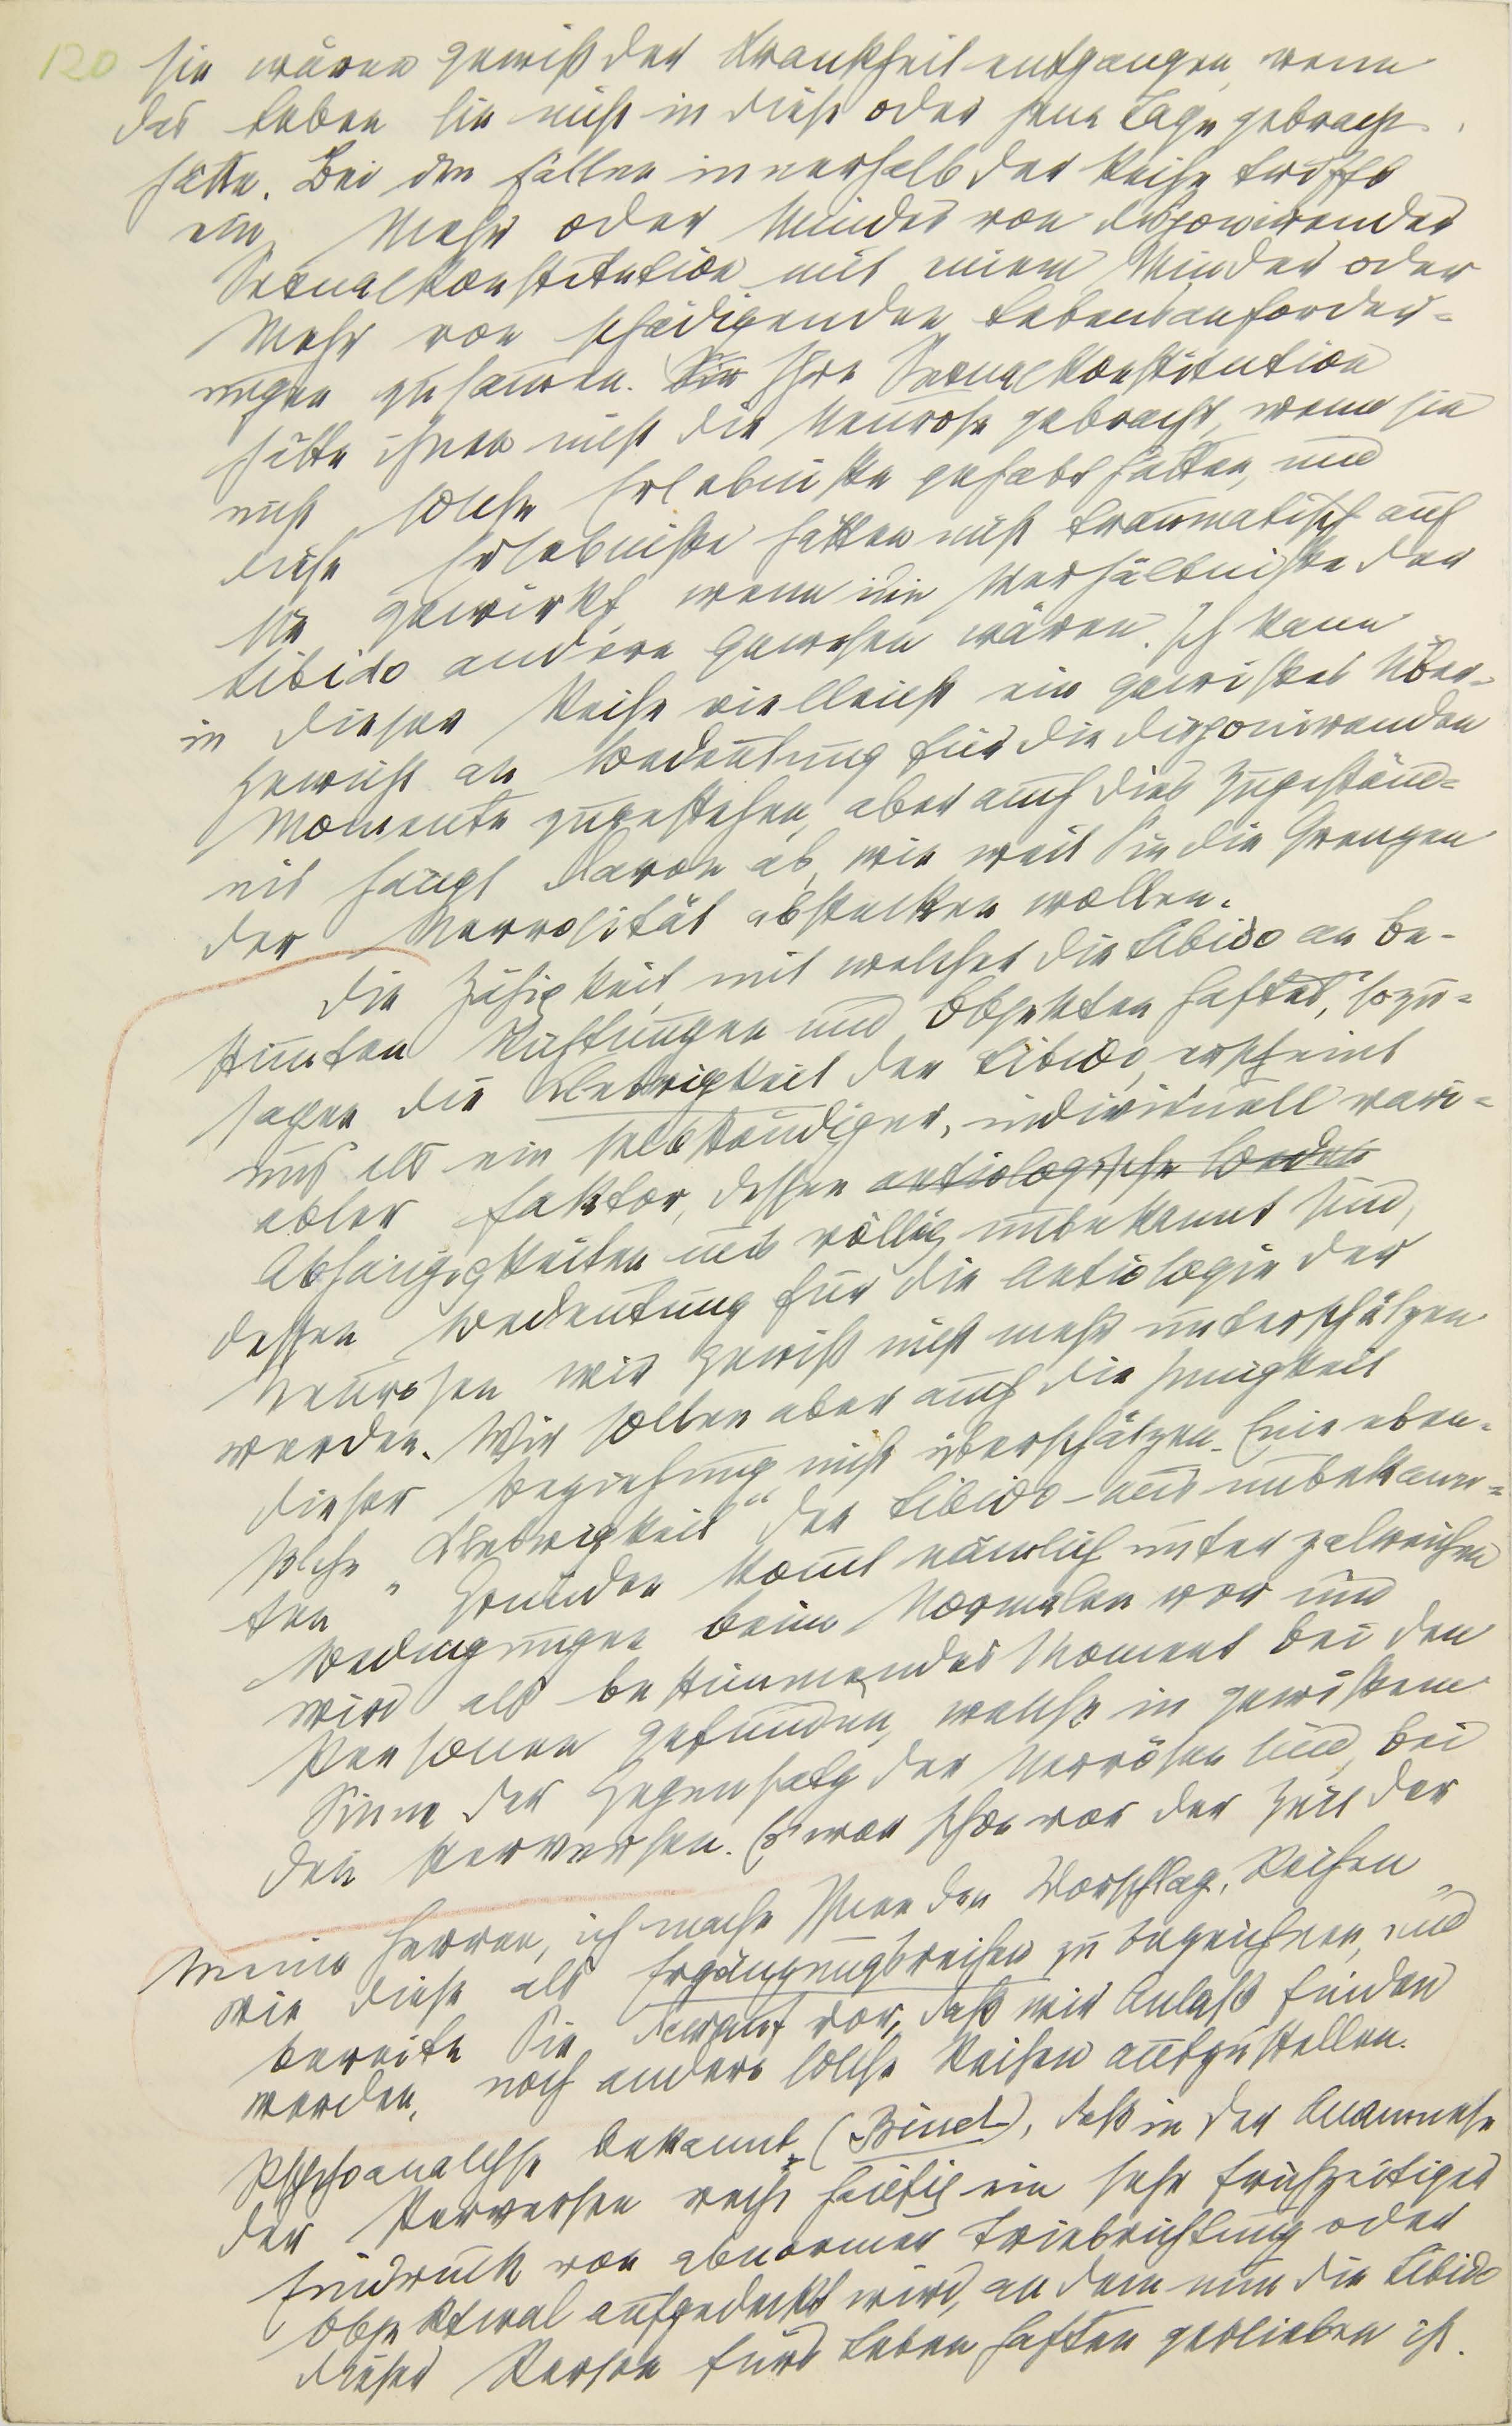 120
sie wären gewiß der Krankheit entgangen, wenn
das Leben sie nicht in diese oder jene Lage gebracht
hätte. Bei den Fällen innerhalb der Reihe trifft
ein Mehr oder Minder von disponirender
Sexualkonstitution mit einem Minder oder
Mehr von schädigenden Lebensanforder=
ungen zusammen. Sie Ihre Sexualkonstitution
hätte ihnen nicht die Neurose gebracht, wenn sie
nicht solche Erlebnisse gehabt hätten, und
diese Erlebnisse hätten nicht traumatisch auf
sie gewirkt, wenn die Verhältnisse der
Libido andere gewesen wären. Ich kann
in dieser Reihe vielleicht ein gewisses Über=
gewicht an Bedeutung für die disponirenden
Momente zugestehen, aber auch dies Zugeständ=
nis hängt davon ab, wie weit Sie die Grenzen
der Nervosität abstecken wollen.
Die Zähigkeit, mit welcher die Libido an be-
stimmten Richtungen und Objekten haftet, sozu=
sagen die Klebrigkeit der Libido, erscheint
uns als ein selbständiger, individuell vari=
abler Faktor, dessen aetiologische Bedeut
Abhängigkeiten uns völlig unbekannt sind,
dessen Bedeutung für die Aetiologie der
Neurosen wir gewiß nicht mehr unterschätzen
werden. Wir sollen aber auch die Innigkeit
dieser Beziehung nicht überschätzen. Eine eben-
solche „Klebrigkeit“ der Libido – aus unbekann=
ten Gründen kommt nämlich unter zalreichen
Bedingungen beim Normalen vor und
wird als bestimmendes Moment bei den
Personen gefunden, welche in gewissem
Sinne der Gegensatz der Nervösen sind, bei
den Perversen. Es war schon vor der Zeit der
Meine Herren, ich mache Ihnen den Vorschlag, Reihen
wie diese als Ergänzungsreihen zu bezeichnen, und
bereite Sie darauf vor, daß wir Anlaß finden
werden, noch andere solche Reihen aufzustellen.
Psychoanalyse bekannt (Binet), daß in der Anamnese
der Perversen recht häufig ein sehr frühzeitiger
Eindruck von abnormer Triebrichtung oder
Objektwal aufgedeckt wird, an dem nun die Libido
dieser Person fürs Leben haften geblieben ist.